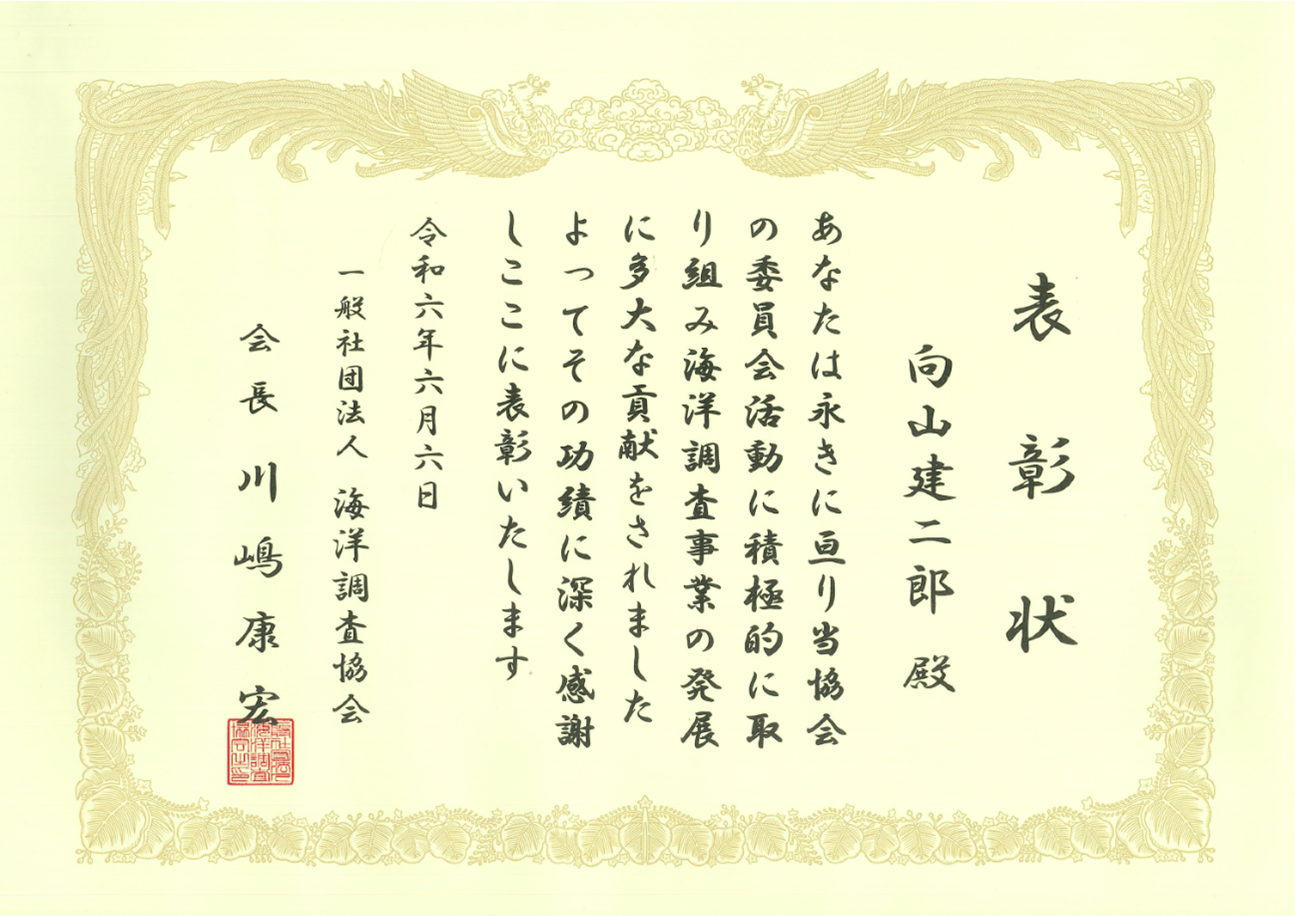 表彰状
向山建二郎 殿
あなたは永きに亘り当協会
の委員会活動に積極的に取
り組み海洋調査事業の発展
に多大な貢献をされました
よってその功績に深く感謝
しここに表彰いたします
令和六年六月六日
一般社団法人 海洋調査協会
会長 川嶋康宏